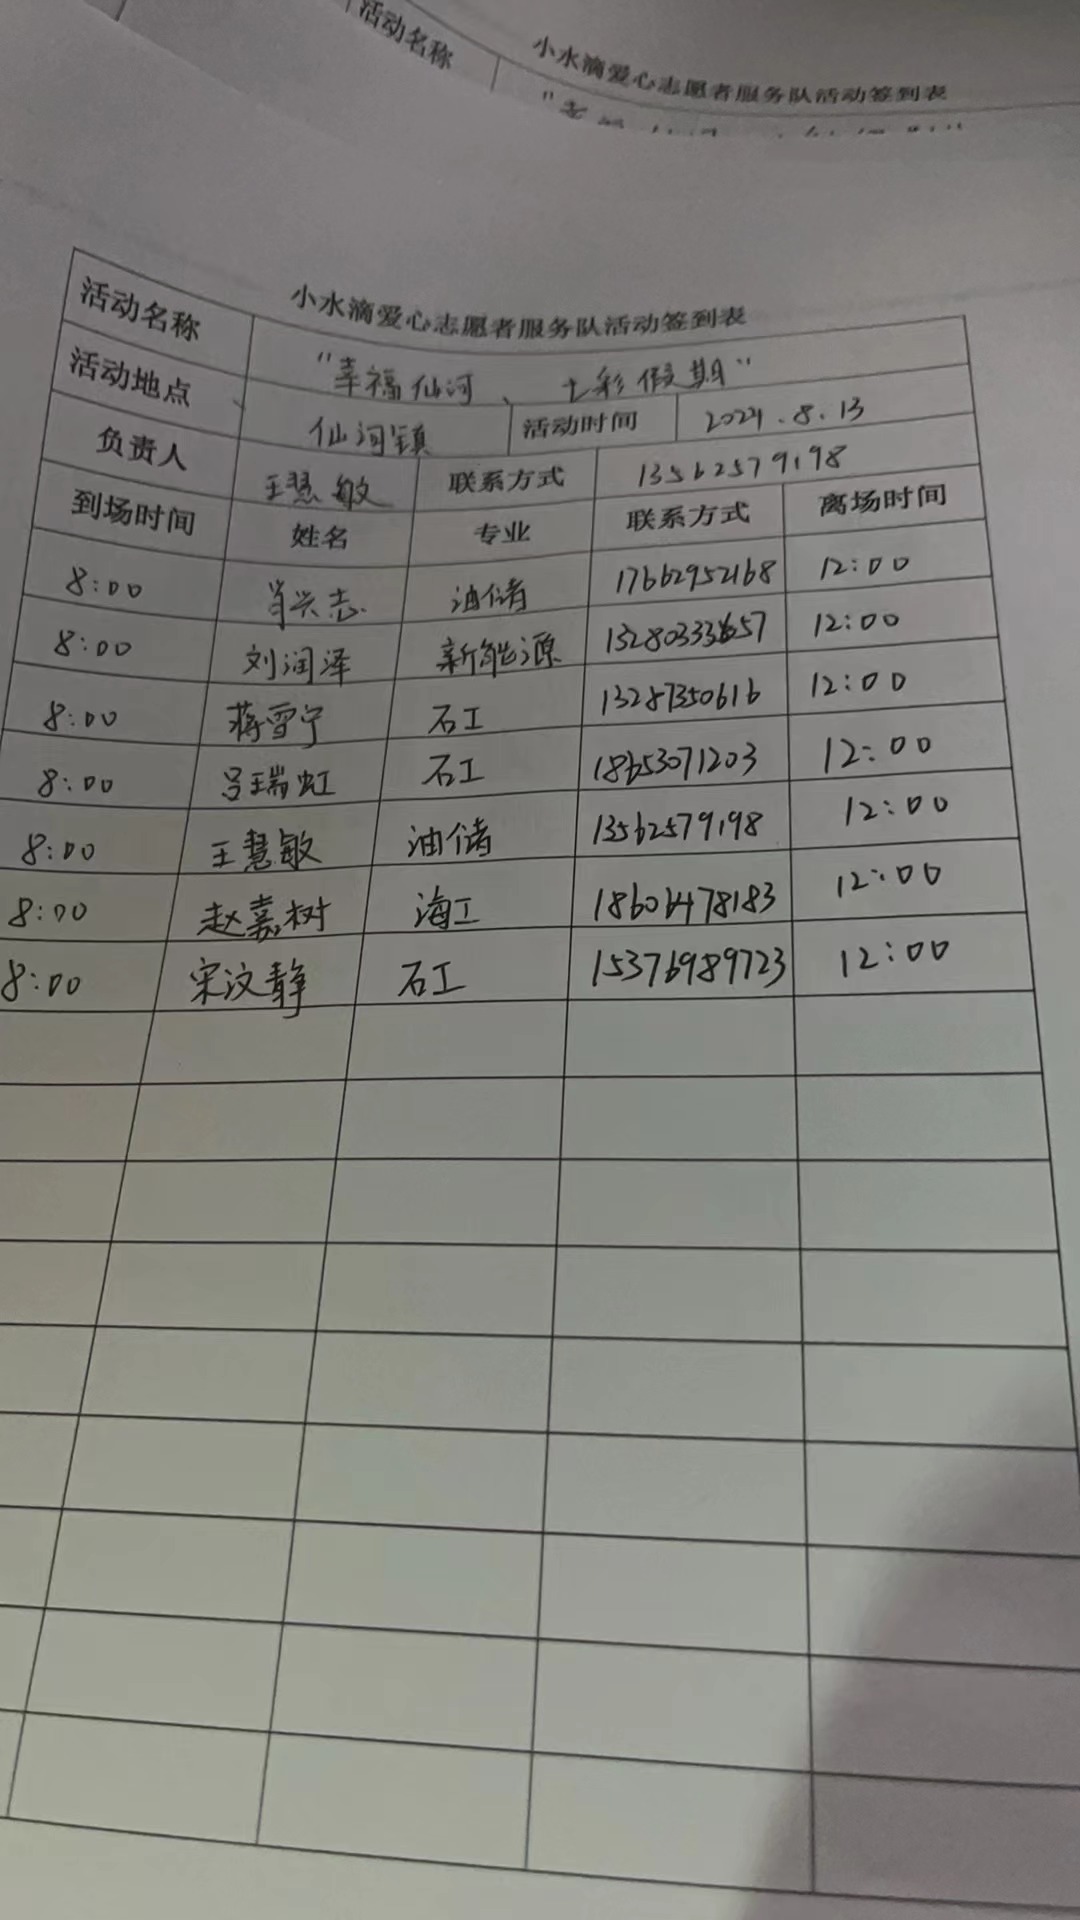 活动名称
小水滴爱心志愿者服务队活动签到表
小水滴爱心志愿者服务队活动签到表
活动名称 "幸福仙河、七彩假期"
活动地点 仙河镇 活动时间 2024.8.13
负责人 王慧敏 联系方式 13562579198
到场时间 姓名 专业 联系方式 离场时间
8:00 肖兴志 油储 17662952168 12:00
8:00 刘润泽 新能源 12:00
8:00 蒋雪宁 石工 13287350616 12:00
8:00 吕瑞虹 石工 18653071203 12:00
8:00 王慧敏 油储 13562579198 12:00
8:00 赵嘉树 海工 18606478183 12:00
8:00 宋汶静 石工 15376989723 12:00